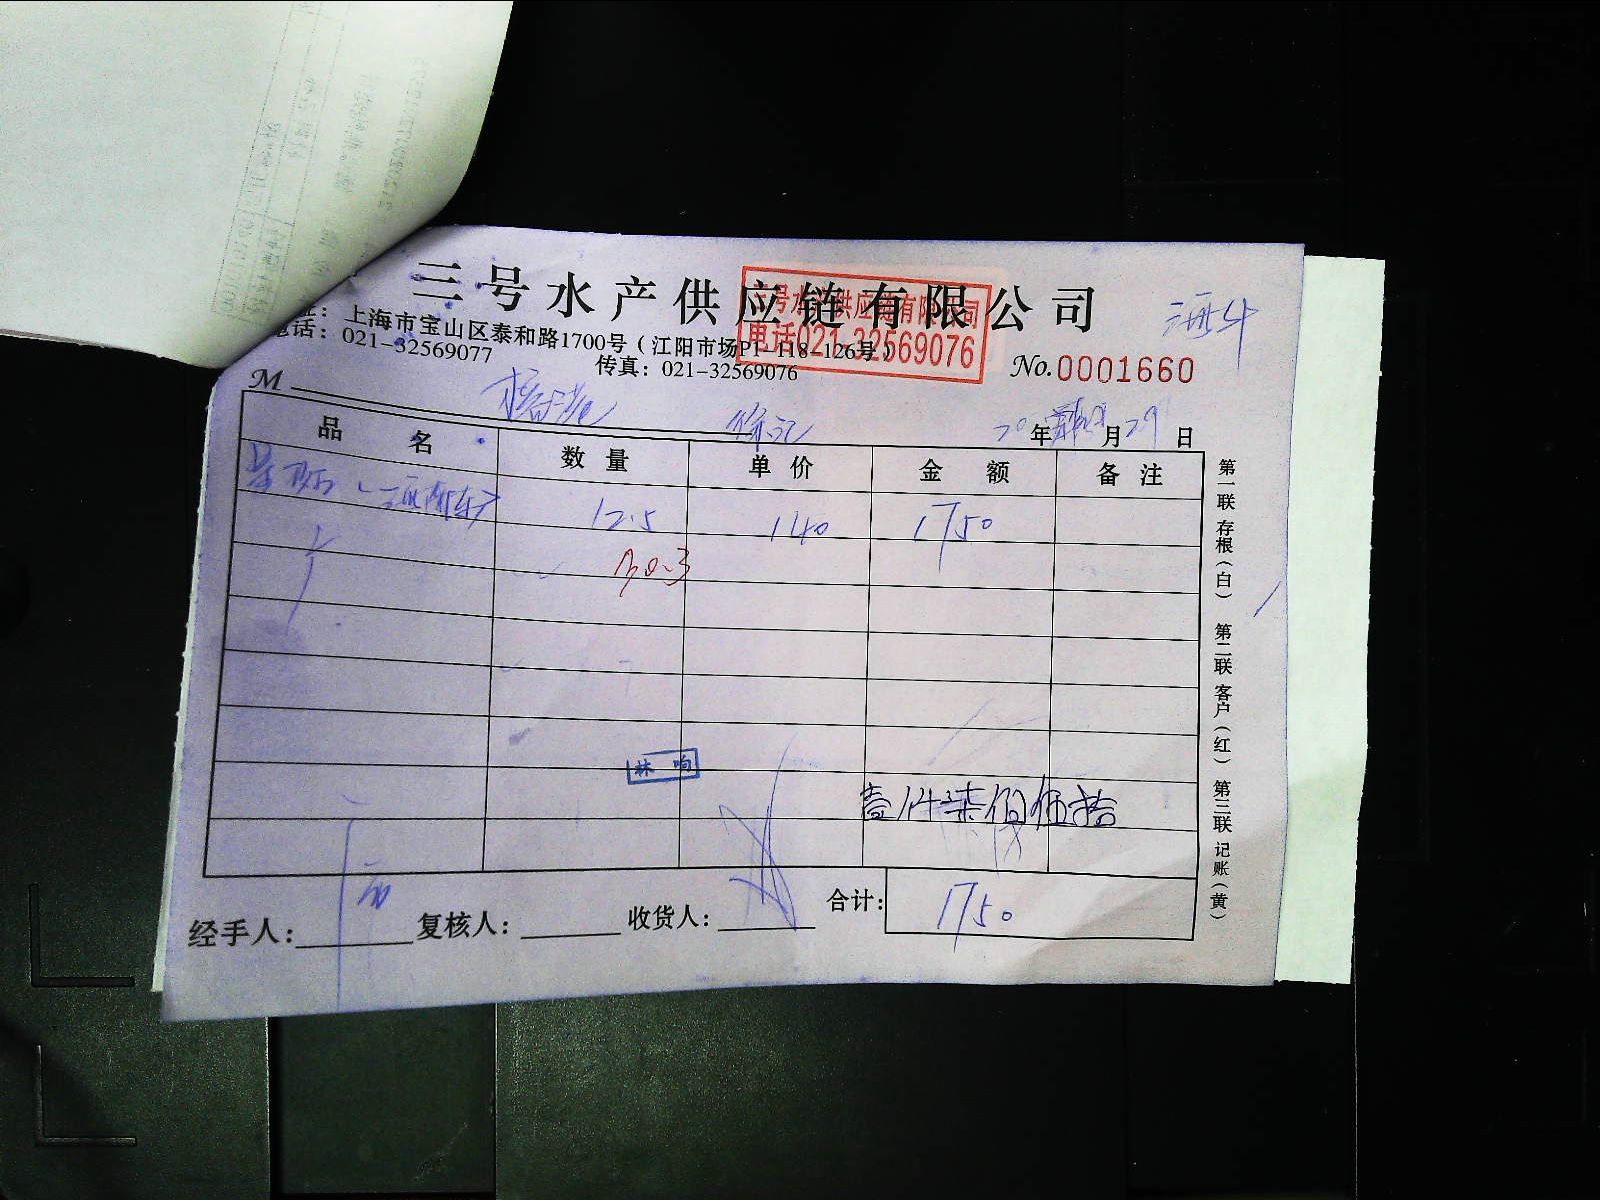 三号水产供应链有限公司
址：上海市宝山区泰和路1700号（江阳市场P1-118-126号）
电话：021-32569077 传真：021-32569076
三号水产供应链有限公司
电话021-32569076
No.0001660
M
20年 月29日
品名 数量 单价 金额 备注
12.5 140 1750
30.3
林 响
壹仟柒佰伍拾
经手人： 复核人： 收货人： 合计：1750
第一联 存根（白） 第二联 客户（红） 第三联 记账（黄）